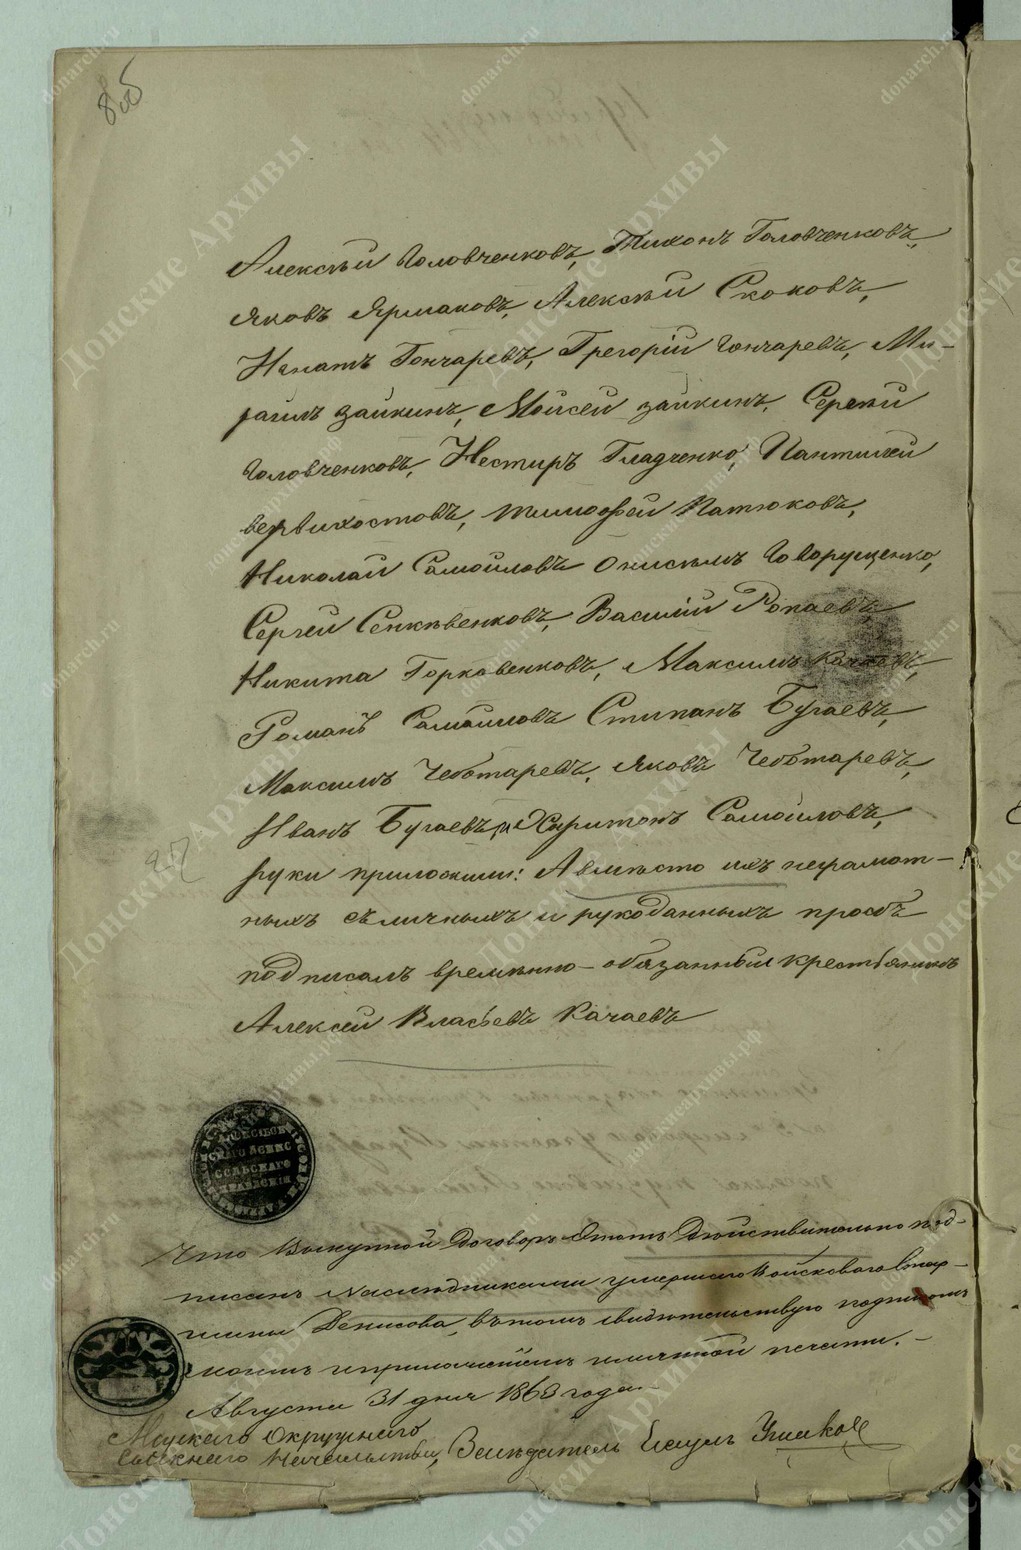 805
Алексѣй Головченковъ, Тихонъ Головченковъ,
Яковъ Ярмаковъ, Алексѣй Скоковъ,
Игнатъ Гончаревъ, Грегорій Гончаревъ, Ми-
хаилъ Зайкинъ, Мойсей Зайкинъ, Сергий
Головченковъ, Нестиръ Гладченко, Пантилей
Вервихостовъ, Тимофей Патюковъ,
Николай Самойловъ Онисимъ Говорущенко,
Сергей Сенкѣвенковъ, Василий Ропаевъ,
Никита Горковенковъ, Максимъ Качаевъ,
Романъ Самойловъ Стипанъ Бугаевъ,
Максимъ Чеботаревъ, Яковъ Чеботаревъ,
Иванъ Бугаевъ, и Харитонъ Самойловъ,
руки приложили: А вмѣсто ихъ неграмот-
ныхъ съ личныхъ и рукоданныхъ прозбъ
подписалъ временно-обязанный крестьянинъ
Алексей Власьевъ Качаевъ
Что Выкупной Договоръ Этотъ Дѣйствительно под-
писанъ Наслѣдниками умершаго Войсковаго Стар-
шины Денисова, въ томъ свидѣтельствую подписомъ
моимъ и приложеніемъ именной печати. -
Августа 31 дня 1863 года. -
Міускаго Окружнаго
Сыскнаго Начальства, Засѣдатель Есаулъ Ушаковъ